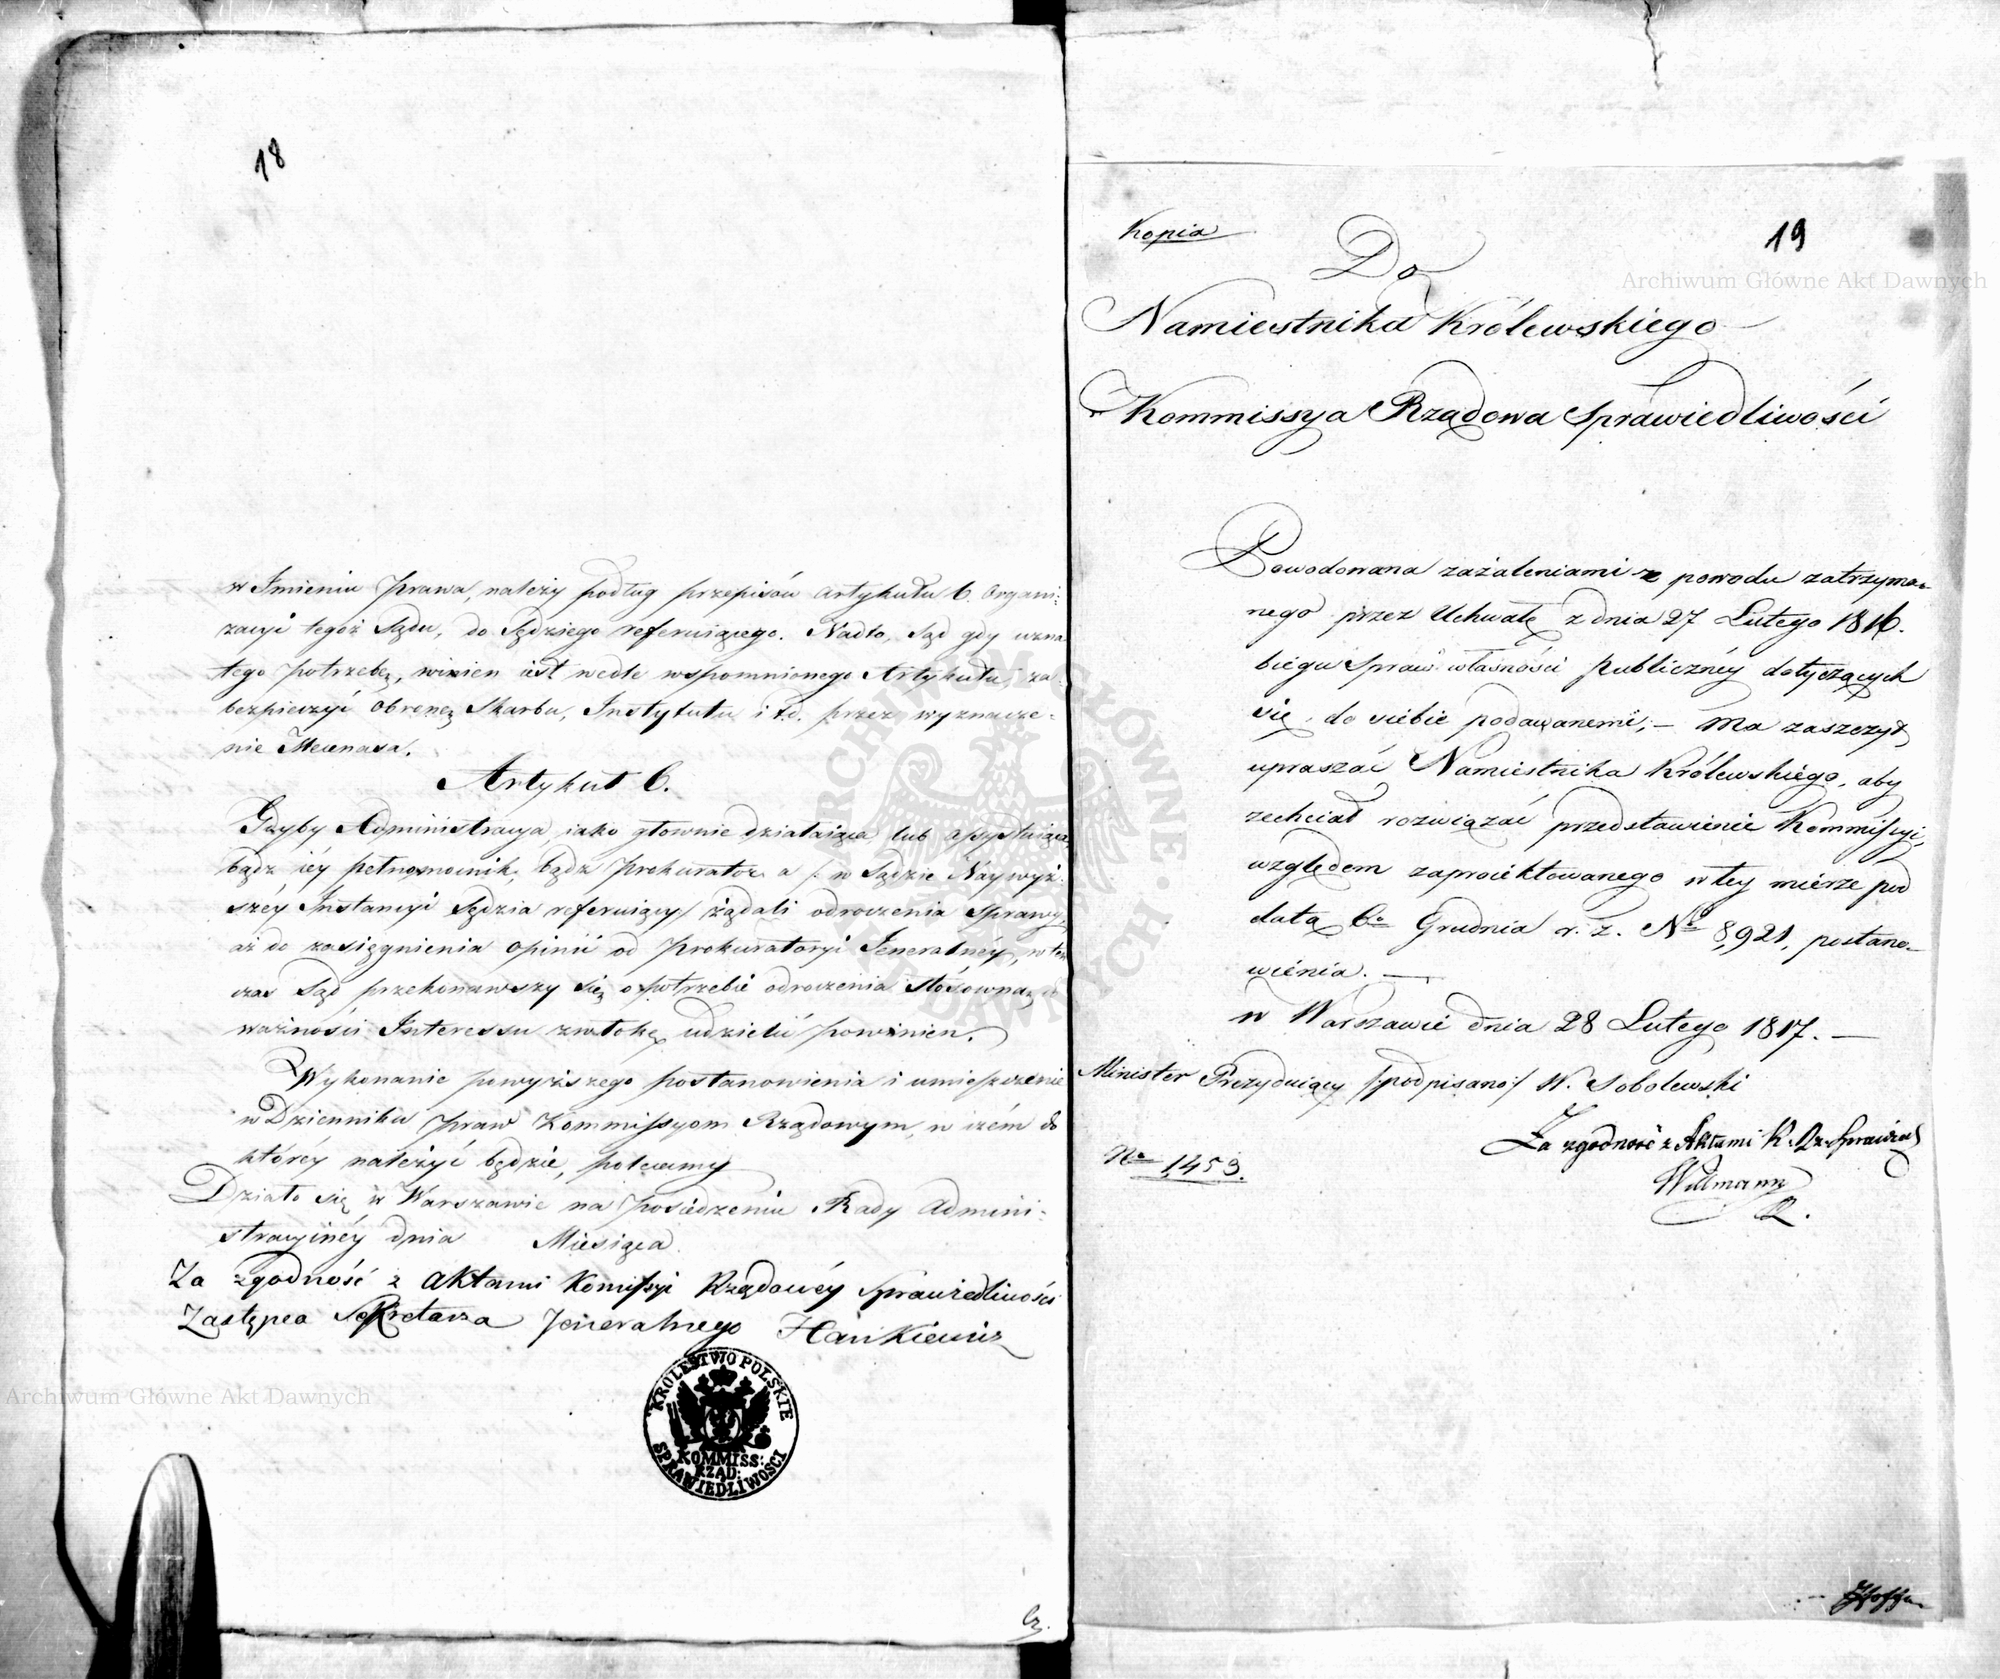 18
w Imieniu Prawa, należy podług przepisów Artykułu 6. Organi-
zacyi tegoż Sądu, do Sędziego referuiącego. Nadto, Sąd gdy uzna
tego potrzebę, winien iest wedle wspomnionego Artykułu, za-
bezpieczyć obronę Skarbu, Instytutu i t.d. przez wyznacze-
nie Mecenasa.
Artykuł 6.
Gdyby Administracya, iako głównie działaiąca, lub assystuiąca,
bądź iéy pełnomocnik, bądź Prokurator a /: w Sądzie Náywyż-
széy Instancyi Sędzia referuiący/ żądali odroczenia Sprawy,
aż do zasięgnienia Opinii od Prokuratoryi Jeneralnéy, w ten
czas Sąd przekonawszy się o potrzebie odroczenia stósowną do
ważności Interessu zwłokę udzielić powinien.
Wykonanie powyższego postanowienia i umieszczenie
w Dzienniku Praw Kommissyom Rządowym, w czém do
któréy należyć będzie, polecamy
Działo się w Warszawie na Posiedzeniu Rady Admini-
stracyinéy dnia Miesiąca
Za zgodność z Aktami Komissyi Rządowéy Sprawiedliwości
Zastępca Sekretarza Jeneralnego Hankiewicz
KRÓLESTWO POLSKIE
KOMMISS:
RZĄD:
SPRAWIEDLIWOSCI
Archiwum Główne Akt Dawnych
ARCHIWUM GŁÓWNE AKT DAWNYCH
Kopia
19
Archiwum Główne Akt Dawnych
Do
Namiestnika Królewskiego
Kommissya Rządowa Sprawiedliwości
Powodowana zażaleniami z powodu zatrzyma-
nego przez Uchwałę z dnia 27 Lutego 1816.
biegu Spraw własności Publicznéy dotyczących
się, do siebie podawanemi, – ma zaszczyt
upraszać Namiestnika Królewskiego, aby
zechciał rozwiązać przedstawienie Kommissyi,
względem zaproiektowanego w tey mierze pod
datą 6o Grudnia r. z. No 8,921, postano-
wienia. —
w Warszawie dnia 28 Lutego 1817. —
Minister Prezyduiący /podpisano/ W. Sobolewski
Za zgodność z Aktami K. Rz. Sprawied
No 1453.